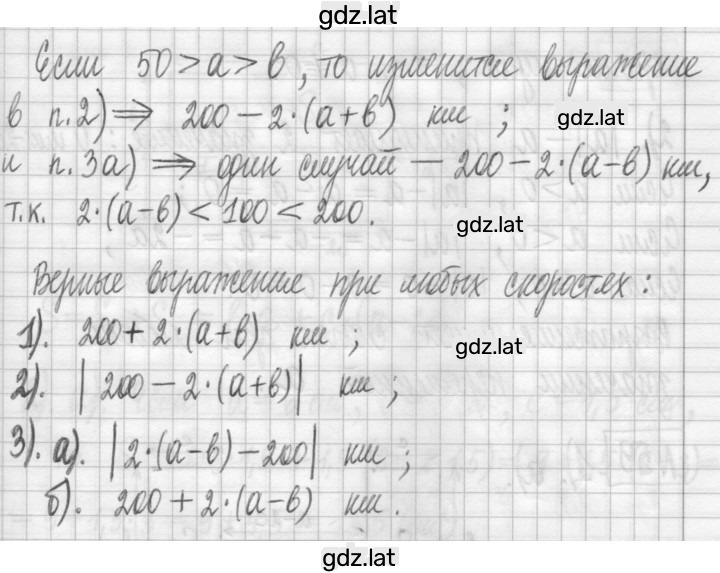 gdz.lat
Если 50 > a > b, то изменится выражение
в п.2) ⟹ 200 − 2·(a+b) км ;
gdz.lat
и п. 3а) ⟹ один случай — 200 − 2·(a−b) км,
т.к. 2·(a−b) < 100 < 200.
gdz.lat
Верные выражение при любых скоростях :
1). 200 + 2·(a+b) км ;
gdz.lat
2). | 200 − 2·(a+b)| км ;
3). а). |2·(a−b) − 200| км ;
б). 200 + 2·(a−b) км.
gdz.lat